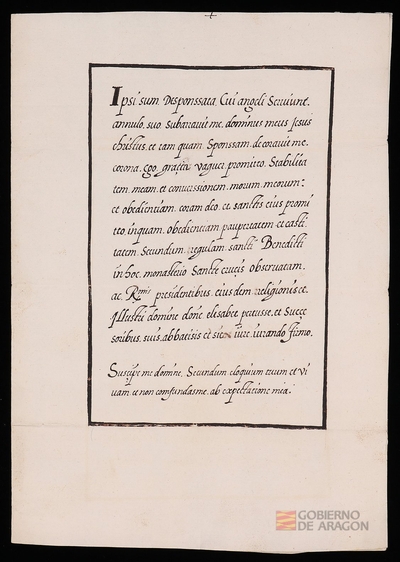 Ipsi sum. Desponssata. Cui angeli Seruiunt.
annulo. suo. Subarauit me. dominus meus Jesus
christus. et tam quam. Sponssam. decorauit me.
corona. ego. gracia vaguer promitto. Stabilita
tem. meam. et conuerssionem. morum. meorum:
et obedientiam. coram deo. et sanctis eius promi
tto. inquam. obedientiam paupertatem et casti
tatem. Secundum. regulam. sancti Benedicti
in hoc. monasterio Sancte crucis obseruatam.
ac. Rmis presidentibus. eiusdem religionis et
Illustri domine done elisabet petusse. et Succe
soribus. suis. abbatisis et sic iure. iurando firmo.
Suscipe me domine. Secundum eloquium tuum et vi
uam et non comfundasme. ab expectatione mea.
GOBIERNO
DE ARAGON